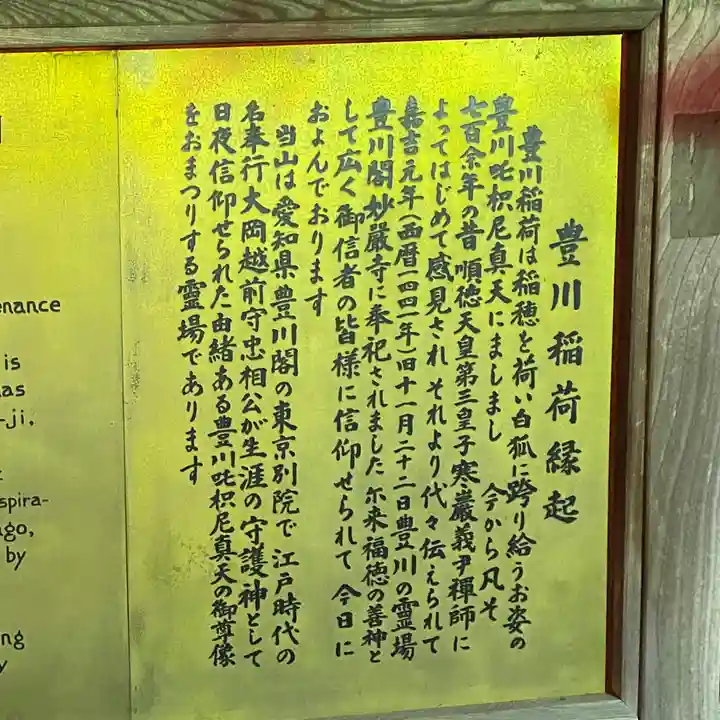 豊川稲荷縁起
豊川稲荷は稲穂を荷い白狐に跨り給うお姿の
豊川吒枳尼真天にましまし 今から凡そ
七百余年の昔 順徳天皇第三皇子寒巌義尹禪師に
よってはじめて感見され それより代々伝えられて
嘉吉元年(西暦一四四一年)旧十一月二十二日豊川の霊場
豊川閣妙厳寺に奉祀されました 尓来福徳の善神と
して広く御信者の皆様に信仰せられて 今日に
およんでおります
当山は愛知県豊川閣の東京別院で 江戸時代の
名奉行大岡越前守忠相公が生涯の守護神として
日夜信仰せられた由緒ある豊川吒枳尼真天の御尊像
をおまつりする霊場であります
enance
is
as
-ji.
spira-
ago,
by
ng
y